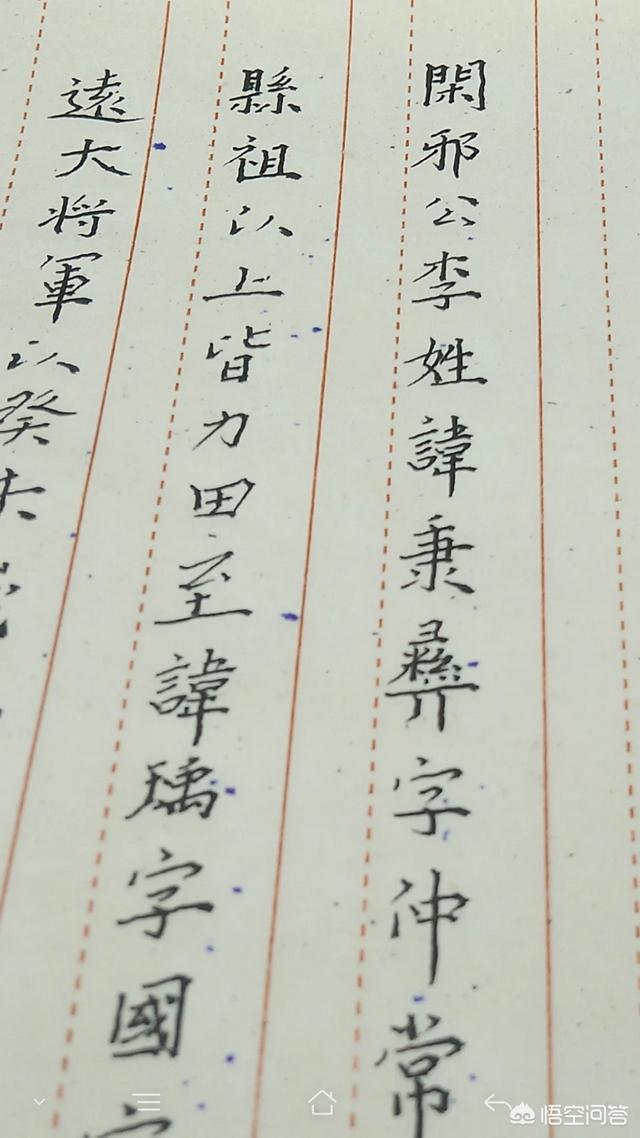 閑邪公李姓諱秉彝字仲常
縣祖以上皆力田至諱瑀字國
遠大将軍以癸未
悟空问答